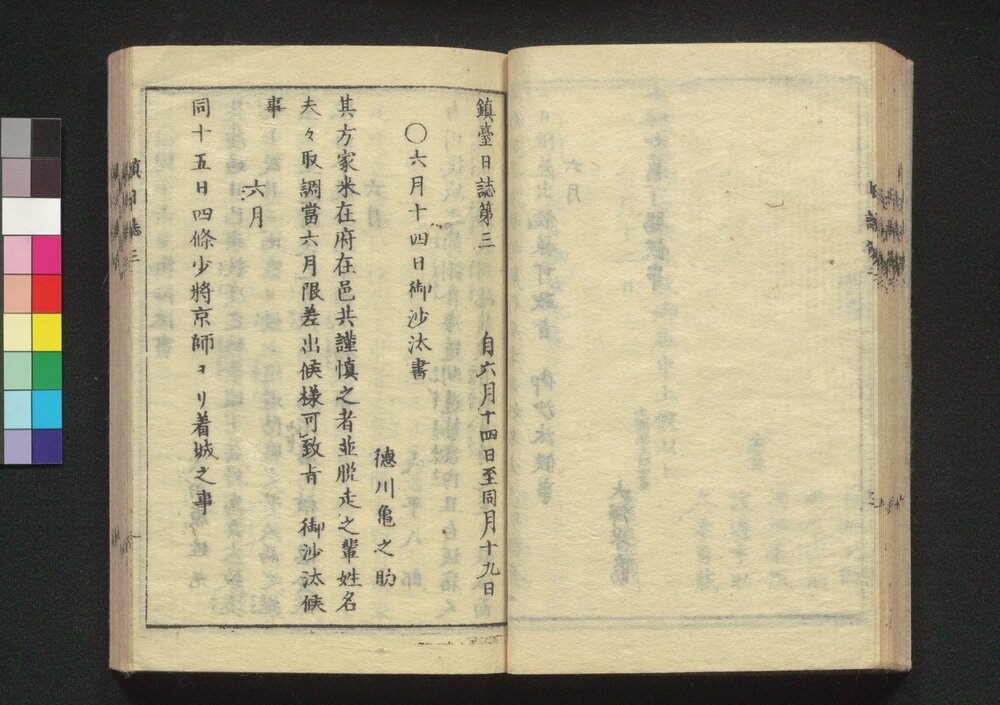 鎮臺日誌第三 自六月十四日至同月十九日
〇六月十四日御沙汰書
徳川亀之助
其方家来在府在邑共謹慎之者並脱走之輩姓名
夫々取調當六月限差出候様可致旨御沙汰候
事
六月
同十五日四條少將京師ヨリ着城之事
鎮日誌三